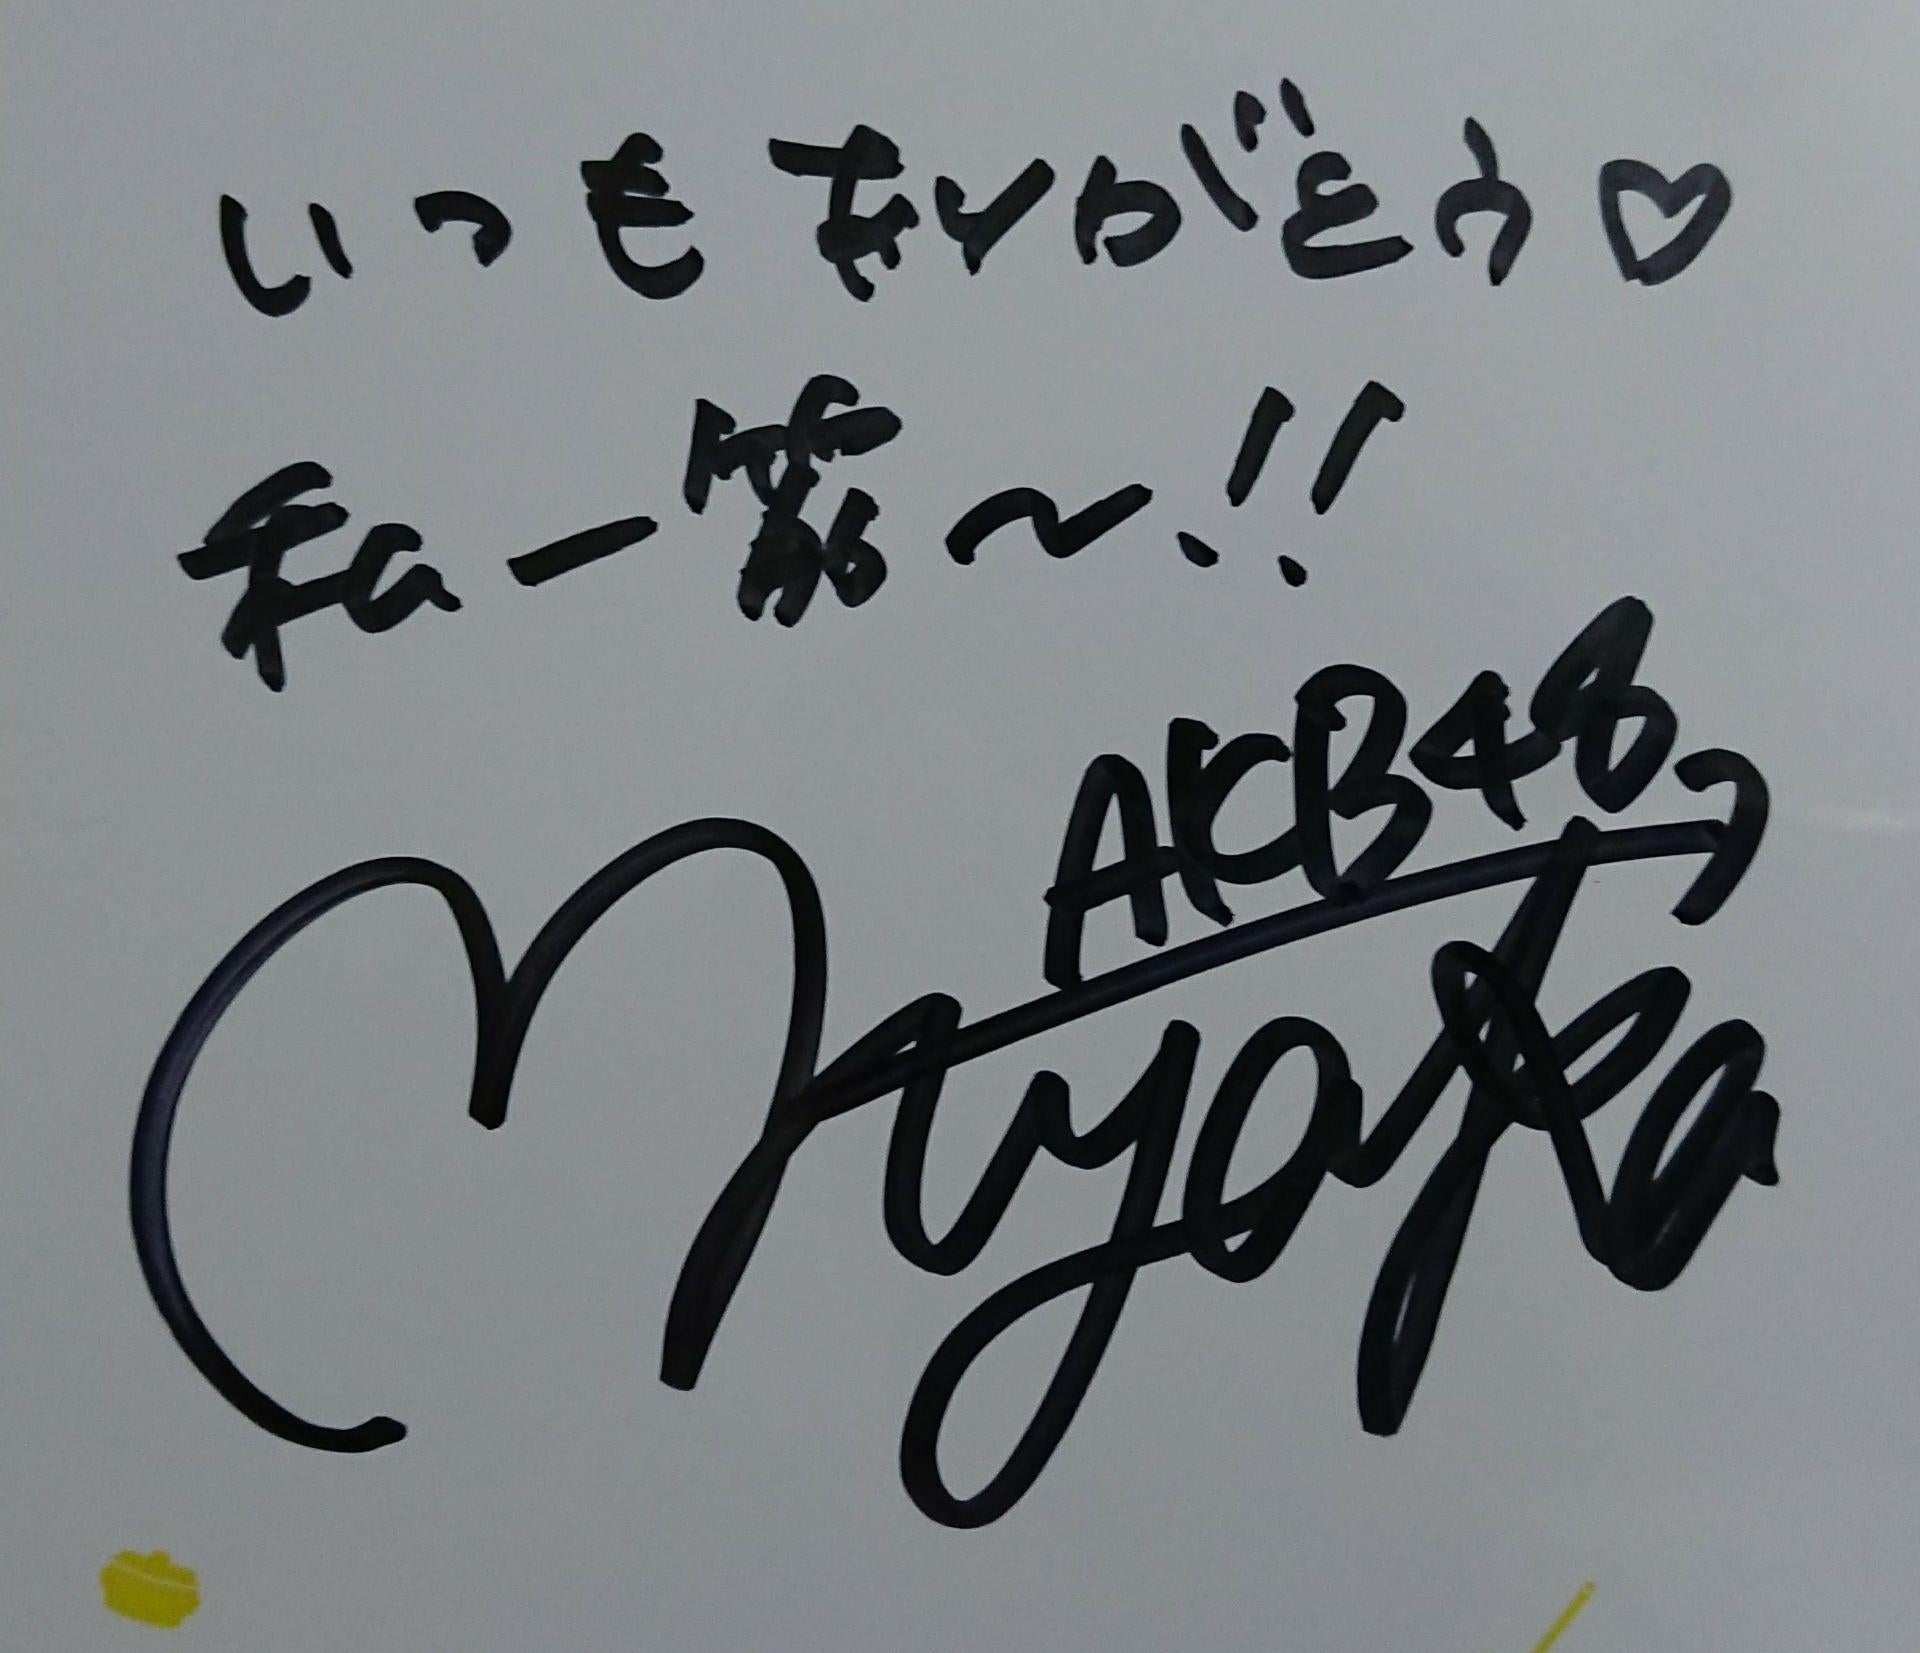 いつもありがとう♡
私一筋〜!!
AKB48
Miyata